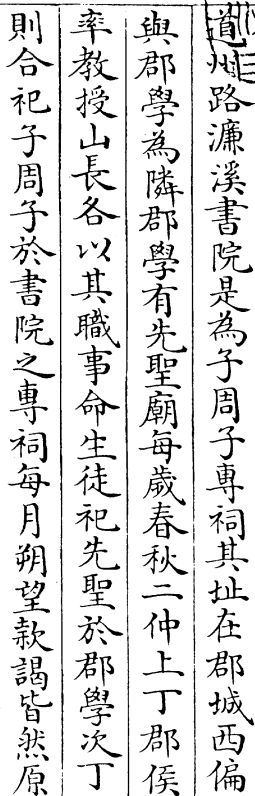 道州路濂溪書院是為子周子專祠其址在郡城西偏
與郡學為隣郡學有先聖廟每歲春秋二仲上丁郡侯
率教授山長各以其職事命生徒祀先聖於郡學次丁
則合祀子周子於書院之專祠每月朔望款謁皆然原